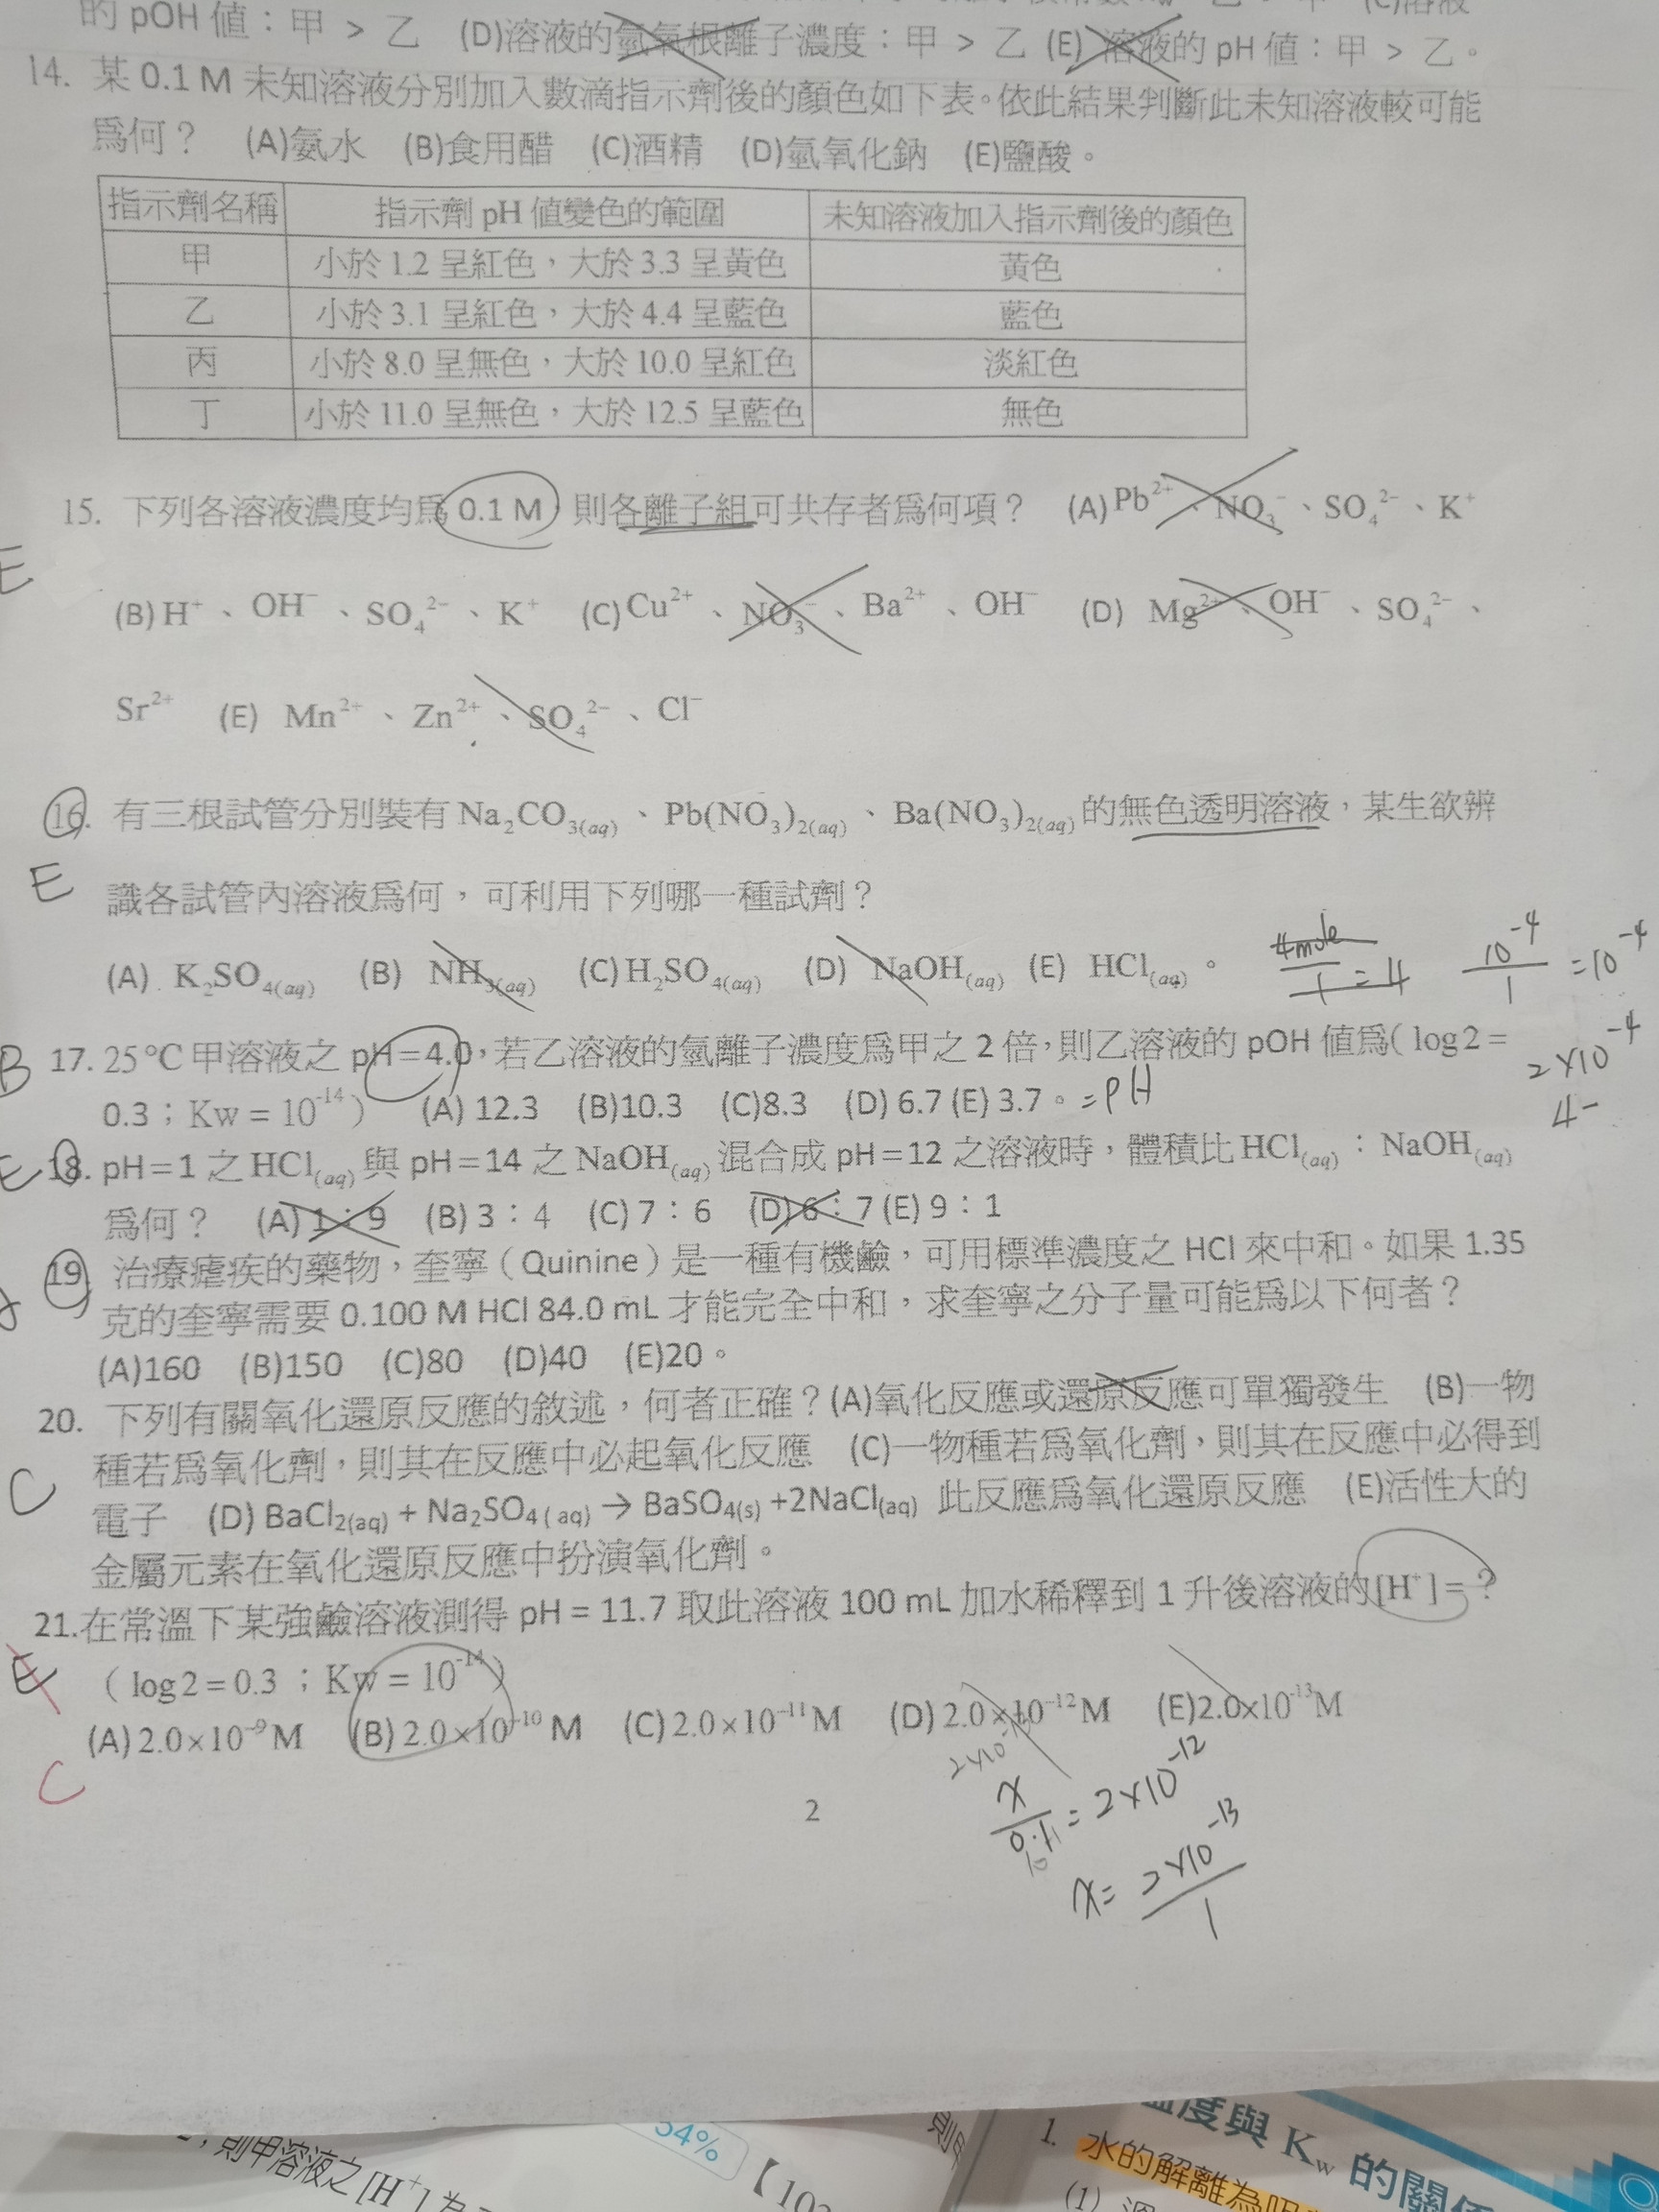 的 pOH 值：甲 > 乙 (D)溶液的氫氧根離子濃度：甲 > 乙 (E) 溶液的 pH 值：甲 > 乙。
14. 某 0.1 M 未知溶液分別加入數滴指示劑後的顏色如下表。依此結果判斷此未知溶液較可能
為何？ (A)氨水 (B)食用醋 (C)酒精 (D)氫氧化鈉 (E)鹽酸。
指示劑名稱 指示劑 pH 值變色的範圍 未知溶液加入指示劑後的顏色
甲 小於 1.2 呈紅色，大於 3.3 呈黃色 黃色
乙 小於 3.1 呈紅色，大於 4.4 呈藍色 藍色
丙 小於 8.0 呈無色，大於 10.0 呈紅色 淡紅色
丁 小於 11.0 呈無色，大於 12.5 呈藍色 無色
15. 下列各溶液濃度均為 0.1 M，則各離子組可共存者為何項？ (A) Pb²⁺、NO₃⁻、SO₄²⁻、K⁺
E
(B) H⁺、OH⁻、SO₄²⁻、K⁺ (C) Cu²⁺、NO₃⁻、Ba²⁺、OH⁻ (D) Mg²⁺、OH⁻、SO₄²⁻、
Sr²⁺ (E) Mn²⁺、Zn²⁺、SO₄²⁻、Cl⁻
16. 有三根試管分別裝有 Na₂CO₃(aq)、Pb(NO₃)₂(aq)、Ba(NO₃)₂(aq) 的無色透明溶液，某生欲辨
E 識各試管內溶液為何，可利用下列哪一種試劑？
(A). K₂SO₄(aq) (B) NH₃(aq) (C) H₂SO₄(aq) (D) NaOH(aq) (E) HCl(aq)。
4mole/1 = 4 10⁻⁴/1 = 10⁻⁴
B 17. 25℃甲溶液之 pH=4.0，若乙溶液的氫離子濃度為甲之 2 倍，則乙溶液的 pOH 值為( log2 =
2×10⁻⁴
0.3；Kw = 10⁻¹⁴ ) (A) 12.3 (B)10.3 (C)8.3 (D) 6.7 (E) 3.7。=PH
4-
E 18. pH=1 之 HCl(aq) 與 pH=14 之 NaOH(aq) 混合成 pH=12 之溶液時，體積比 HCl(aq)：NaOH(aq)
為何？ (A) 1：9 (B) 3：4 (C) 7：6 (D) 6：7 (E) 9：1
19. 治療瘧疾的藥物，奎寧（Quinine）是一種有機鹼，可用標準濃度之 HCl 來中和。如果 1.35
克的奎寧需要 0.100 M HCl 84.0 mL 才能完全中和，求奎寧之分子量可能為以下何者？
(A)160 (B)150 (C)80 (D)40 (E)20。
20. 下列有關氧化還原反應的敘述，何者正確？(A)氧化反應或還原反應可單獨發生 (B)一物
種若為氧化劑，則其在反應中必起氧化反應 (C)一物種若為氧化劑，則其在反應中必得到
C
電子 (D) BaCl₂(aq) + Na₂SO₄( aq) → BaSO₄(s) +2NaCl(aq) 此反應為氧化還原反應 (E)活性大的
金屬元素在氧化還原反應中扮演氧化劑。
21.在常溫下某強鹼溶液測得 pH = 11.7 取此溶液 100 mL 加水稀釋到 1 升後溶液的[H⁺]=？
E ( log2 = 0.3；Kw = 10⁻¹⁴ )
(A) 2.0×10⁻⁹ M (B) 2.0×10⁻¹⁰ M (C) 2.0×10⁻¹¹ M (D) 2.0×10⁻¹² M (E)2.0×10⁻¹³ M
C
x/0.1 = 2×10⁻¹²
2
x= 2×10⁻¹³/1
則甲溶液之 [H⁺] 為
34%
【102
則甲
溫度與 Kw 的關係
1. 水的解離為吸
(1)